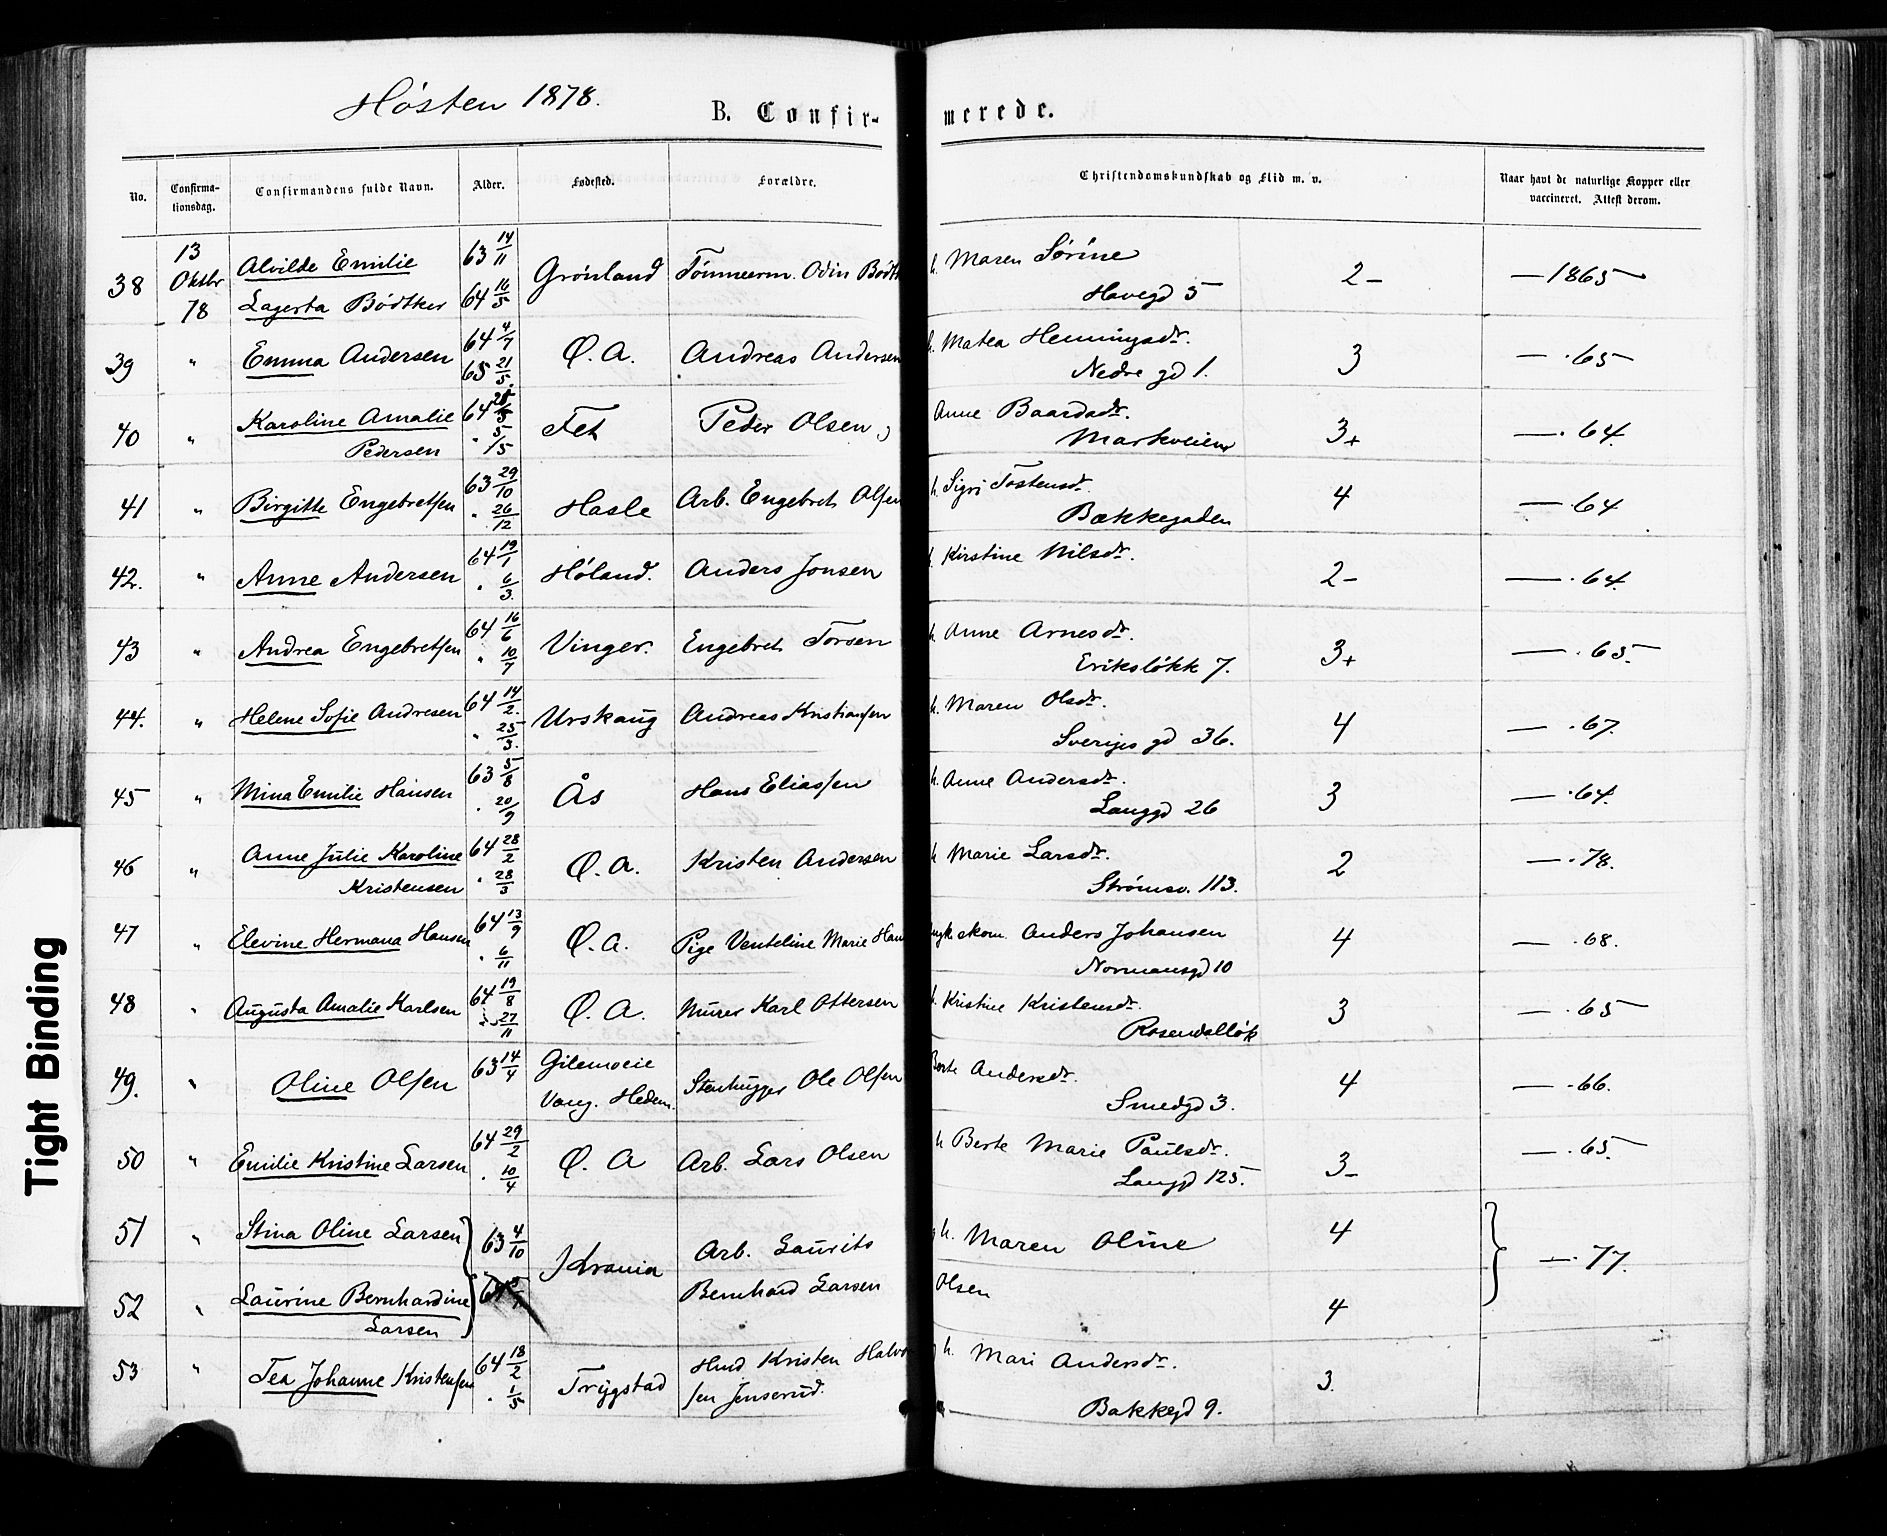 Høsten 1878.
B. Confir-
merede.
No.
Confirma-
tionsdag.
Confirmandens fulde Navn.
Alder.
Fødested.
Forældre.
Christendomskundskab og Flid m. v.
Naar havt de naturlige Kopper eller
vaccineret. Attest derom.
38 13 Oktbr 78 Alvilde Emilie 63 14/11 Grønland Tømmerm. Odin Bødt h. Maren Sørine 2- — 1865
Lagerta Bødtker 64 16/5 Havegd 5
39 " Emma Andersen 64 4/7 Ø. A. Andreas Andersen h. Matea Henningsdr. 3 — . 65
65 21/5. Nedre gd 1.
40 " Karoline Amalie 64 Fet Peder Olsen, Anne Baardsdr. 3+ — . 64.
Pedersen " 5/5 Markveien
41 " Birgitte Engebretsen 63 29/10 Hasle Arb. Engebret Olsen h. Sigri Tostensdr. 4 — . 64
" 26/12 Bækkegaden
42. " Anne Andersen 64 19/1 Høland. Anders Jonsen Kirstine Nilsdr. 2- — . 64.
" 6/3.
43 " Andrea Engebretsen 64 16/6 Vinger. Engebret Torsen h. Anne Arnesdr. 3+ — . 65.
" 10/7 Eriksløkk 7.
44. " Helene Sofie Andresen 64 14/2. Urskaug Andreas Kristiansen h. Maren Olsdr. 4 — . 67.
" 25/3. Sveriges gd 36.
45 " Mina Emilie Hansen 63 5/8 Ås Hans Eliassen h. Anne Andersdr. 3 — . 64.
" 20/9 Langgd 26
46 " Anne Julie Karoline 64 28/2 Ø. A. Kristen Andersen h Marie Larsdr. 2 — . 78.
Kristensen " 28/3 Strømsv. 113.
47 " Elevine Hermana Hansen 64 13/9 Ø. A. Pige Venteline Marie Han ugk skom. Anders Johansen 4 — . 68.
" 6/11 Normansgd 10
48 " Augusta Amalie Karlsen 64 19/8 Ø. A. Murer Karl Ottersen h. Kristine Kristensdr. 3 — . 65
" 27/11 Rosendalløk
49. " Oline Olsen 63 14/4 Gilemoeie Stenhugger Ole Olsen Berte Andersdr. 4 — . 66.
Vang. Hedem. Smedgd 3.
50 " Emilie Kristine Larsen 64 29/2 Ø. A Arb. Lars Olsen h Berte Marie Paulsdr. 3- — . 65.
" 10/4 Langgd 125.
51 " Stina Oline Larsen 63 4/10 Krania Arb. Laurits h. Maren Oline 4 — . 77.
52 " Laurine Bernhardine Bernhard Larsen Olsen 4
Larsen
53 " Tea Johanne Kristensen 64 18/2 Trygstad Husd Kristen Halvo h. Mari Andersdr. 3.
" 1/5 sen Jenserud. Bakkegd 9.
Tight Binding